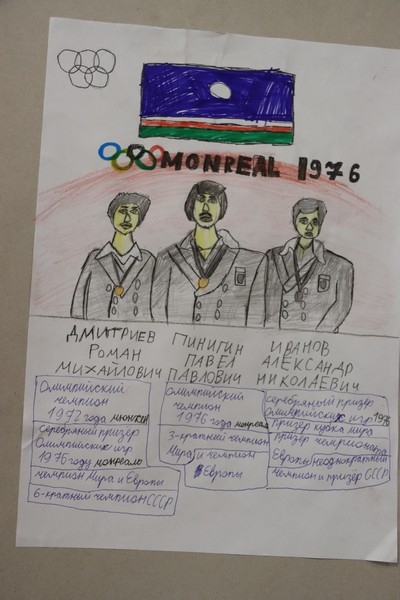 MONREAL 1976
ДМИТРИЕВ
РОМАН
МИХАЙЛОВИЧ
ПИНИГИН
ПАВЕЛ
ПАВЛОВИЧ
ИВАНОВ
АЛЕКСАНДР
НИКОЛАЕВИЧ
Олимпийский
чемпион
1972 года мюнхен
серебряный призёр
Олимпийских игр
1976 году монреаль
чемпион Мира и Европы
6-кратный чемпион СССР
Олимпийский
чемпион
1976 года монреаль
3-кратный чемпион
Мира и чемпион
Европы
серебряный призёр
Олимпийских игр 1976
призёр кубка мира
призёр чемпионата
Европы неоднократный
чемпион и призёр СССР